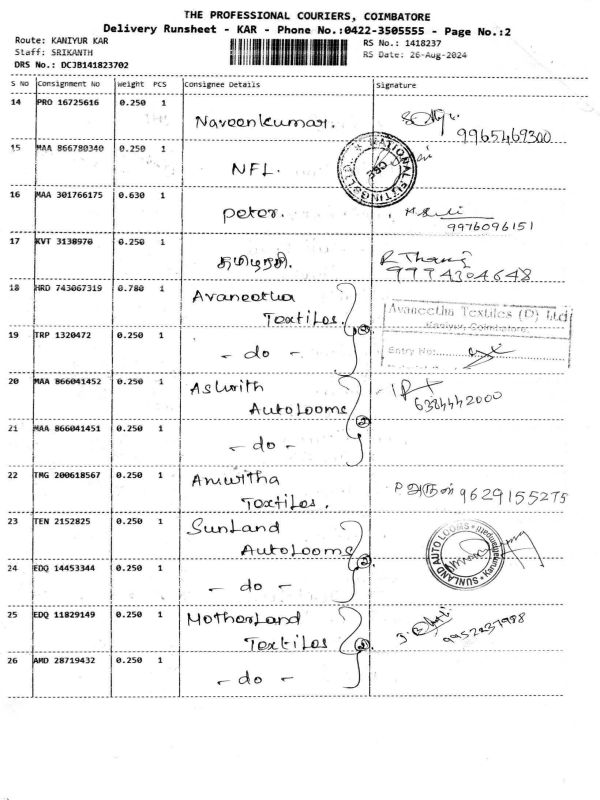 THE PROFESSIONAL COURIERS, COIMBATORE
Delivery Runsheet - KAR - Phone No.:0422-3505555 - Page No.:2
Route: KANIYUR KAR
RS No.: 1418237
Staff: SRIKANTH
RS Date: 26-Aug-2024
DRS No.: DCJB141823702
S No Consignment No Weight PCS Consignee Details Signature
14 PRO 16725616 0.250 1 Naveenkumar.
9965469300
15 MAA 866780340 0.250 1 NFL.
16 MAA 301766175 0.630 1 peter.
9976096151
17 KVT 3138970 0.250 1
R Thangi
9994304648
18 HRD 743067319 0.780 1 Avaneetha
Textiles. 2
Avaneetha Textiles (P) Ltd
Kaniyur, Coimbatore
Entry No:
19 TRP 1320472 0.250 1 - do -
20 MAA 866041452 0.250 1 Aswith
Autolooms 2
6384442000
21 MAA 866041451 0.250 1 - do -
22 TMG 200618567 0.250 1 Amwitha
Textiles.
P அருண் 9629155275
23 TEN 2152825 0.250 1 SunLand
AutoLooms 2
SUNLAND AUTO LOOMS
24 EDQ 14453344 0.250 1 - do -
25 EDQ 11829149 0.250 1 MotherLand
Textiles 2
9952237988
26 AMD 28719432 0.250 1 - do -